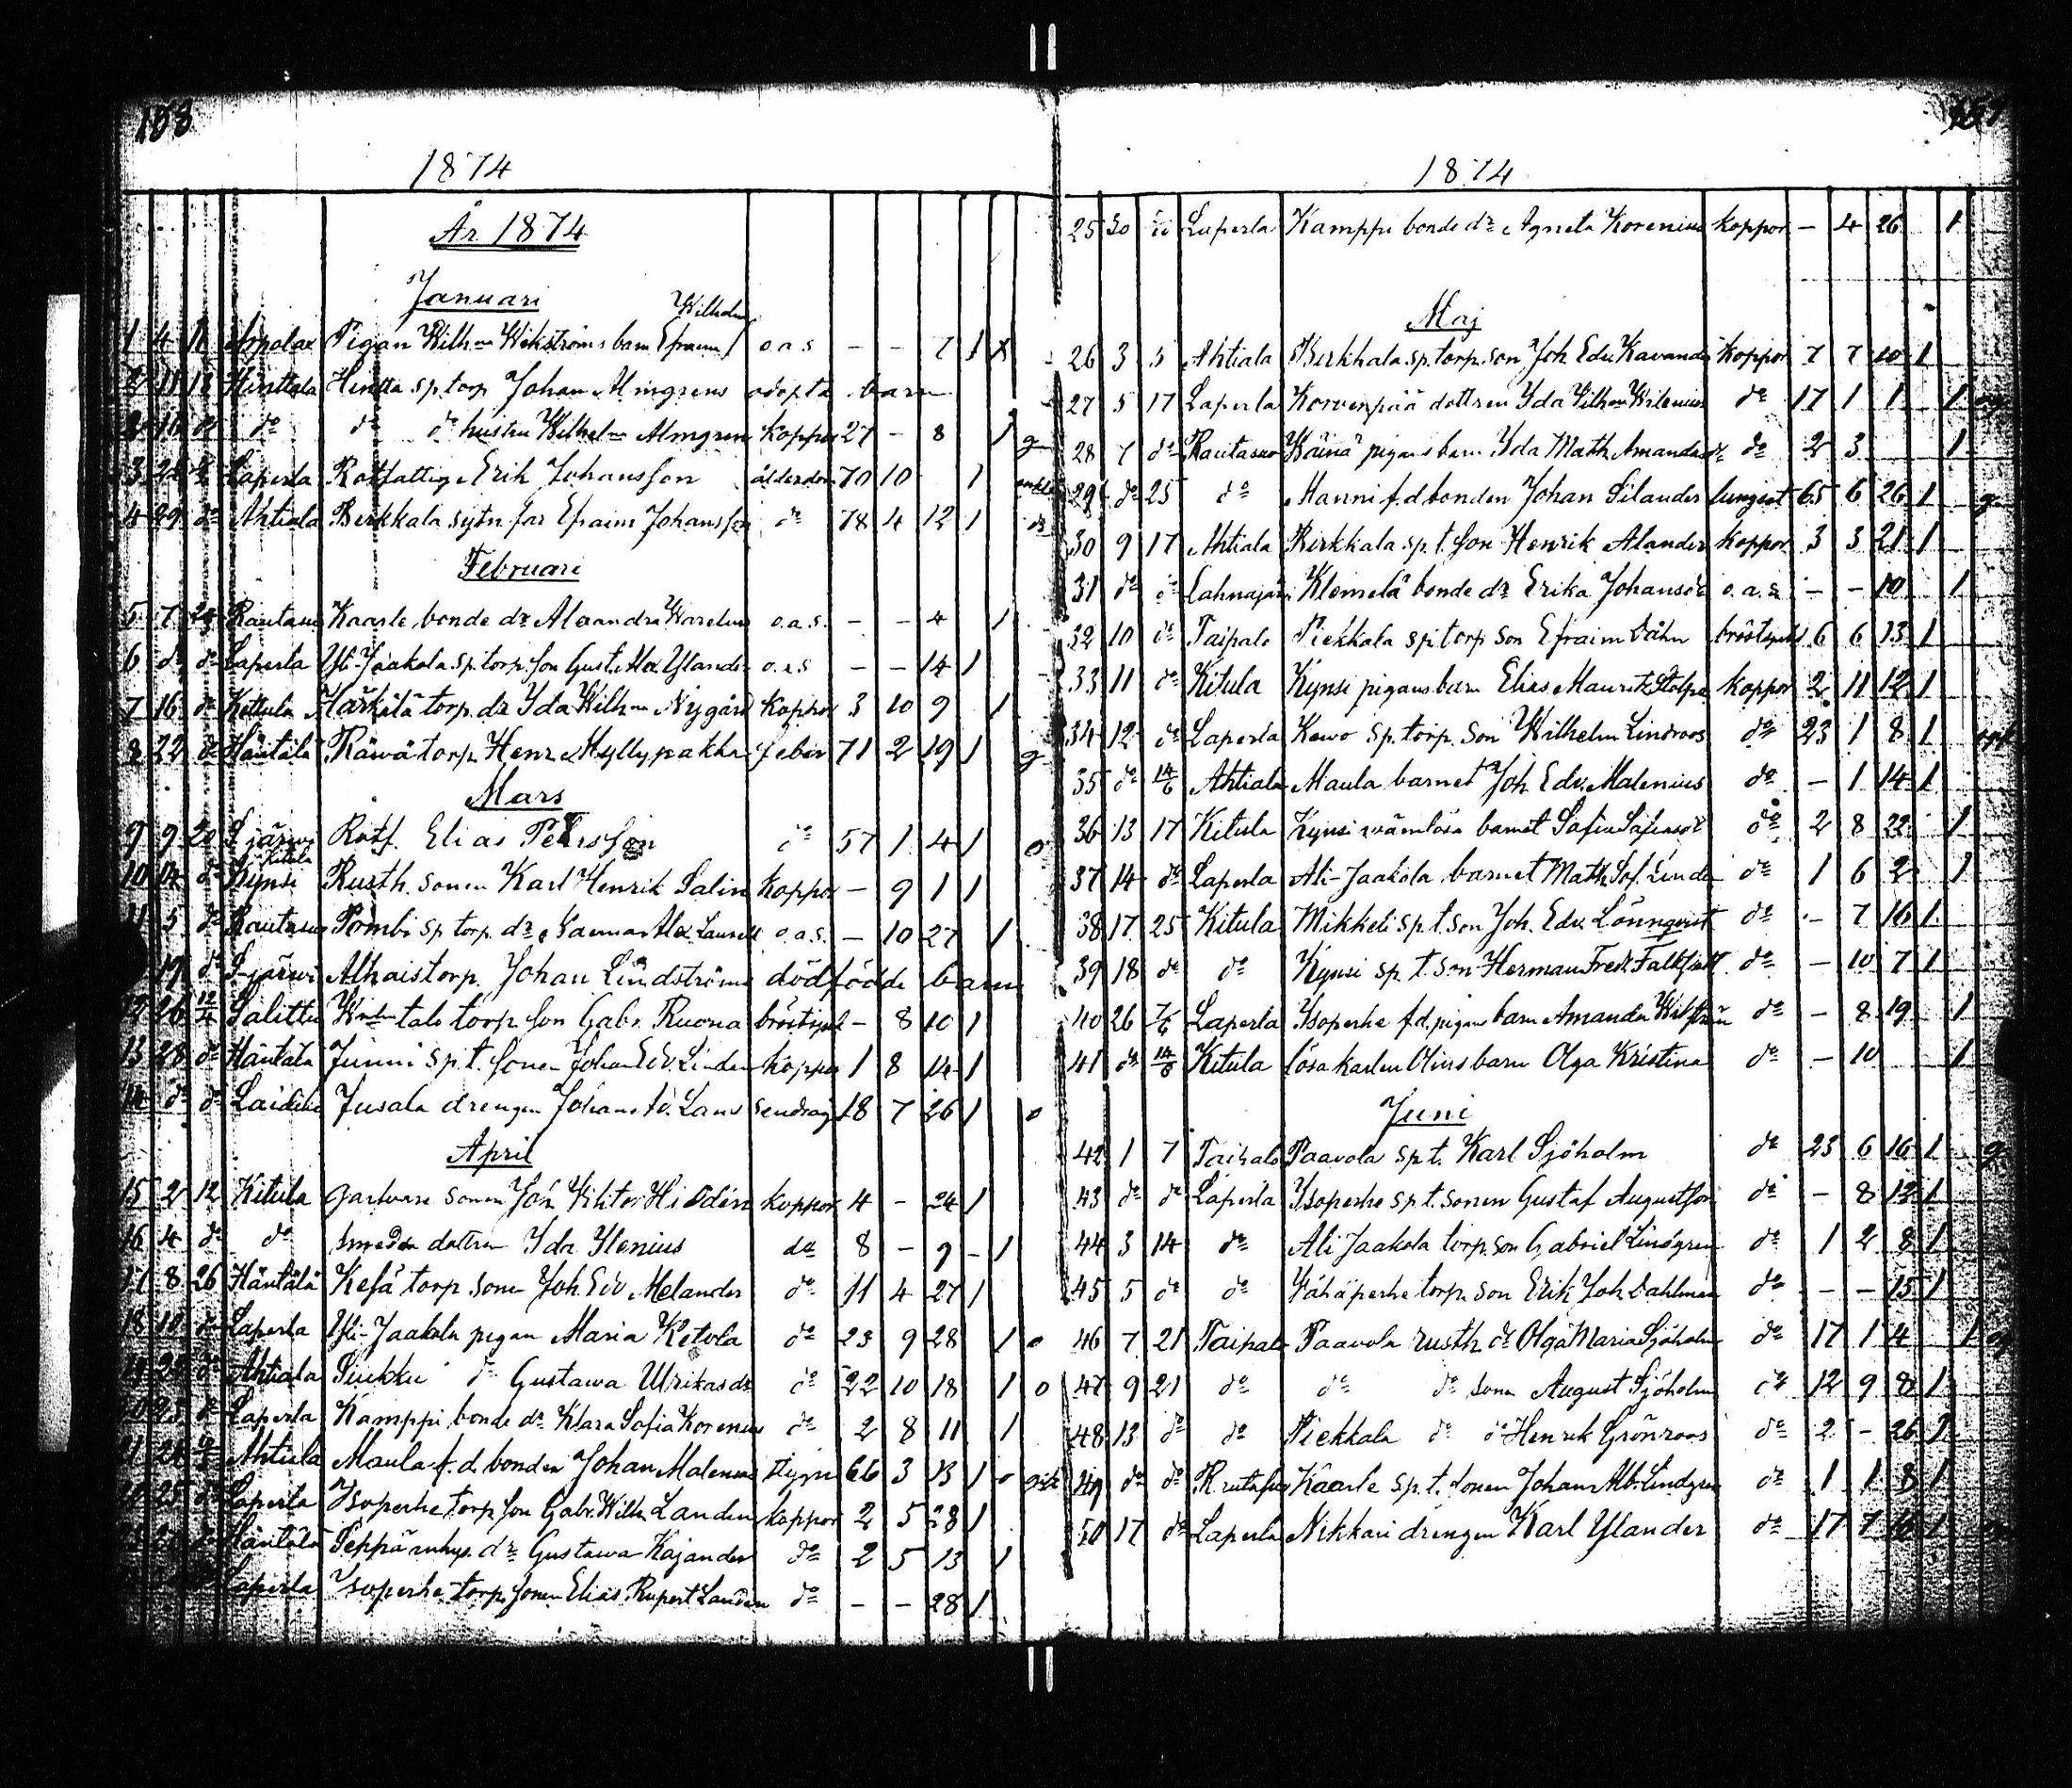 158
1874
År 1874
Januari
Wilhelm
1 4 11 Arpalax Pigan Wilh:na Wikströms barn Efraim o.a.s. - - 7 1 x
2 11 18 Hinttala Hintta sp torp Johan Almgrens odöpta barn
2 16 do do do do hustru Wilhelm:na Almgren koppor 27 - 8 1 g
3 Laperla Rotfattige Erik Johansson ålderdom 70 10 1 enkl
4 29 do Ahtiala Berkkala sytn. far Efraim Johansson do 78 4 12 1 do
Februari
5 7 Rautasuo Kaarle bonde dr Alexandra Warelius o.a.s. - - 4 1
6 do do Laperla Yli-Jaakola sp torp. son Gust. Alex Ylander o.a.s - - 14 1
7 16 do Kittula Härkälä torp. dr Yda Wilh:na Nygård koppor 3 10 9 1
8 22 do Häntälä Räwä torp. Henr. Myllypakka feber 71 2 19 1 g
Mars
9 9 20 S järwi Rotf. Elias Petersson do 57 1 4 1 o
Kitula
10 14 do Kynsi Rusth. sonen Karl Henrik Salin koppor - 9 1 1
11 5 do Rautasuo Pombi sp torp. dr Alex. o.a.s. - 10 27 1
19 do S-järwi Alhais torp. Johan Lindströms dödfödde barn
12 26 12/4 Salittu talo torp. son Gabr. Ruona bröstsjuk - 8 10 1
13 28 do Häntälä Junni sp.t. sonen Johan Edv. Linden koppor 1 8 14 1
14 do do Laidike Jusala drengen Johan Ed. Laus lendragn 18 7 26 1 o
April
15 2 12 Kitula Garfvare sonen Joh. Viktor Hidden koppor 4 - 24 1
16 4 do do Smeden dottren Yda Ylenius do 8 - 9 - 1
17 8 26 Häntälä Kesä torp. sonen Joh. Edv Melander do 11 4 27 1
18 10 do Laperla Yli-Jaakola pigan Maria Ketola do 23 9 28 1 o
19 do Ahtiala Siukku do Gustawa Ulrikasdr do 22 10 18 1 o
20 23 do Laperla Kamppi bonde dr Klara Sofia Korenius do 2 8 11 1
21 24 Ahtiala Maula f.d. bonden Johan Malenius Stygn 66 3 13 1 o gift
25 do Laperla Ysoperhe torp son Gabr. Wilh. Landen koppor 2 5 28 1
Häntälä Seppä inhys. dr Gustawa Kajander do 2 5 13 1
Laperla Ysoperhe torp. sonen Elias Rupert Landen do - - 28 1
1874
25 30 Laperla Kamppi bonde dr Agneta Korenius koppor - 4 26 1
Maj
26 3 5 Ahtiala Birkkala sp. torp. son Joh. Edv. Kavander koppor 7 7 10 1
27 5 17 Laperla Korvenpää dottren Yda Vilh:na Vilenius do 17 1 1 1
28 7 do Rautasuo Wäinä pigans barn Yda Math. Amandasdr do 2 3 1
29 do 25 do Manni f.d. bonden Johan Silander lungsot 65 6 26 1 g
30 9 17 Ahtiala Birkkala sp. t. son Henrik Alander koppor 3 3 21 1
31 do do Lahnajärvi Klemelä bonde dr Erika Johansdr o.a.s. - - 10 1
32 10 do Taipale Piekkala sp torp son Efraim Dåhn bröstsjuk 6 6 13 1
33 11 do Kitula Kynsi pigans barn Elias Maurits Stolpe koppor 2 11 12 1
34 12 do Laperla Kewo sp. torp. son Wilhelm Lindroos do 23 1 8 1
35 do 14/6 Ahtiala Maula barnet Joh. Edv. Malenius do - 1 14 1
36 13 17 Kitula Kynsi wärnlösa barnet Sofia Sofiasdr do 2 8 22 1
37 14 do Laperla Ali-Jaakola barnet Math. Sof. Linda do 1 6 2 1
38 17 25 Kitula Mikkeli sp.t. son Joh. Edv. Lönnqvist do - 7 16 1
39 18 do do Kynsi sp. t. son Herman Fredr. Fältsjält do - 10 7 1
40 26 7/6 Laperla Ysoperhe f.d. pigans barn Amanda do - 8 19 1
41 do 14/6 Kitula lösa karlen Olins barn Olga Kristina do - 10 1
Juni
42 1 7 Taipale Paavola sp t. Karl Sjöholm do 23 6 16 1 g
43 do do Laperla Ysoperhe sp.t. sonen Gustaf Augustsson do - 8 12 1
44 3 14 do Ali Jaakola torp. son Gabriel Lindgren do 1 2 8 1
45 5 do do Vähäperhe torp. son Erik Joh. Dahlman do - - 15 1
46 7 21 Taipale Paavola rusth. dr Olga Maria Sjöholm do 17 1 4 1
47 9 21 do do do sonen August Sjöholm do 12 9 8 1
48 13 do do Piekkala do do Henrik Grönroos do 2 - 26 1
49 do do Rautasuo Kaarle sp.t. sonen Johan Alb. Lindgren do 1 1 8 1
50 17 do Laperla Nikkari drengen Karl Ylander do 17 7 1